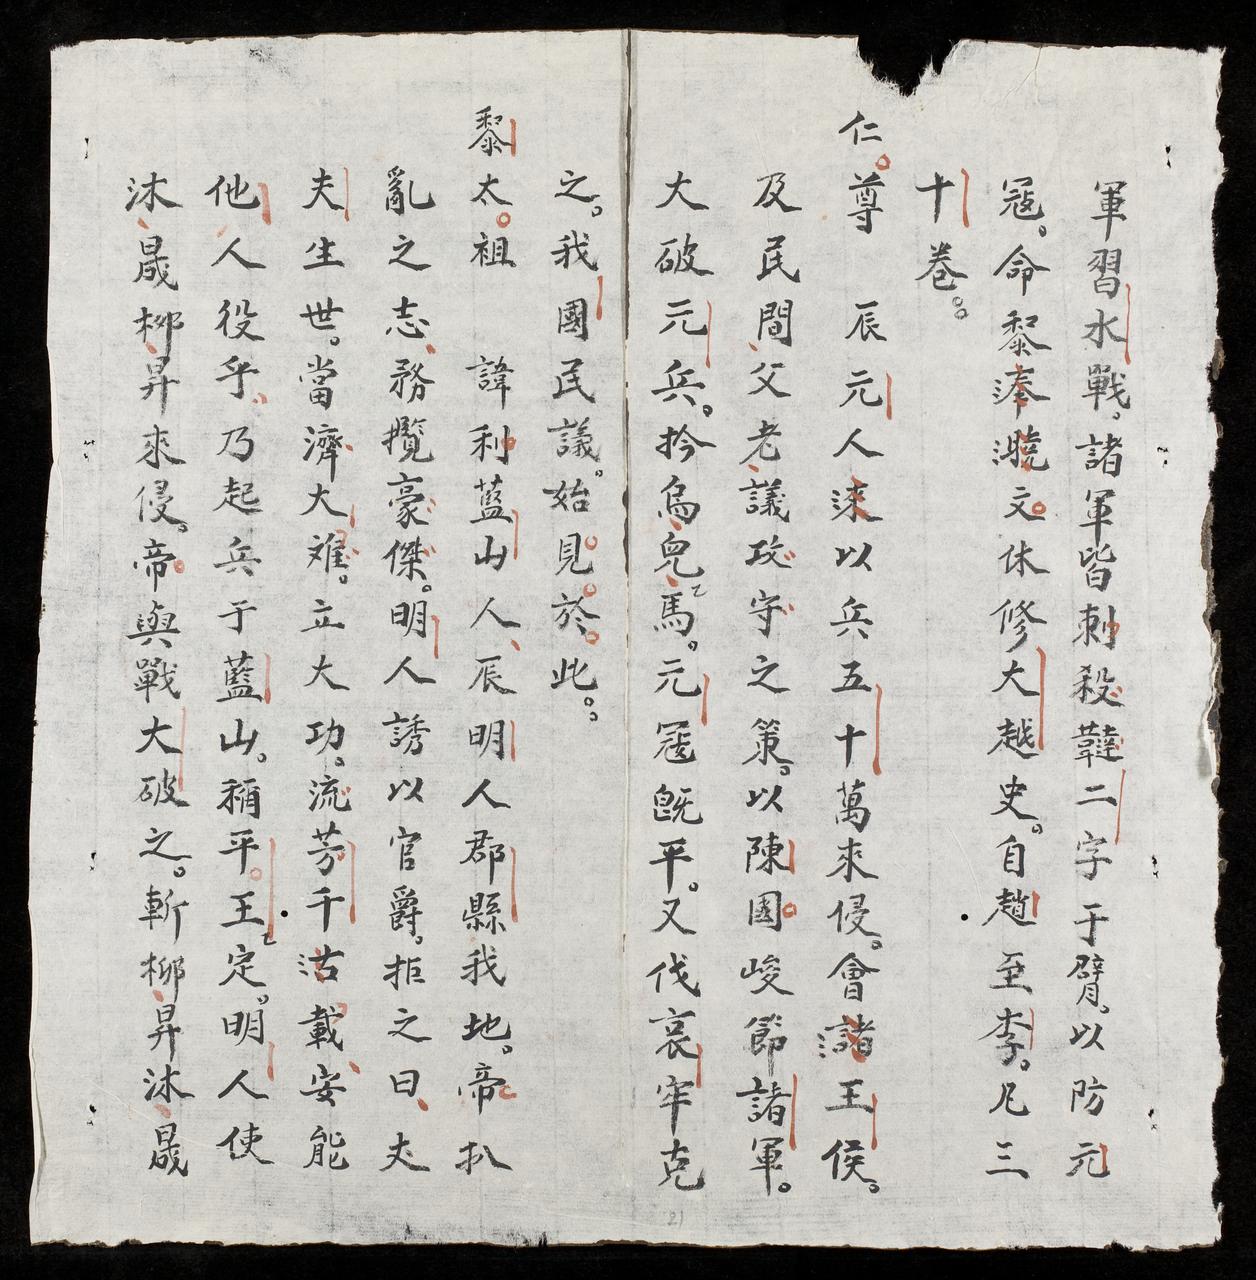 軍習水戰。諸軍皆刺殺韃二字于臂。以防元
冦。命黎湊澆文休修大越史。自趙至李。凡三
十卷。
仁尊 辰元人淶以兵五十萬來侵。會諸王侯。
及民間父老議攻守之策。以陳國峻節諸軍。
大破元兵。扲烏兒馬。元冦既平。又伐哀牢克
之。我國民議。始見於此。
黎太祖 諱利藍山人辰明人郡縣我地。帝扒
亂之志務攬豪傑。明人誘以官爵。拒之曰丈
夫生世。當濟大难。立大功。流芳千沽載安能
他人役乎。乃起兵于藍山。稱平王定。明人使
沐晟柳昇來侵。帝與戰大破之。斬柳昇沐晟
21